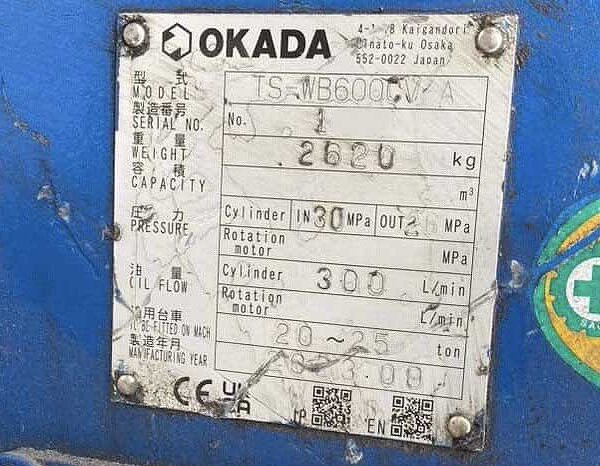 OKADA
Kaigandori
Minato-ku Osaka
552-0022 Japan
型式
MODEL
TS-WB600CV A
製造番号
SERIAL NO.
No. 1
重量
WEIGHT
2620 kg
容積
CAPACITY
m³
圧力
PRESSURE
Cylinder IN 30 MPa OUT MPa
Rotation motor MPa
油量
OIL FLOW
Cylinder 300 L/min
Rotation motor L/min
用台車
BE FITTED ON MACH
20~25 ton
製造年月
MANUFACTURING YEAR
CE UK CA
JP EN